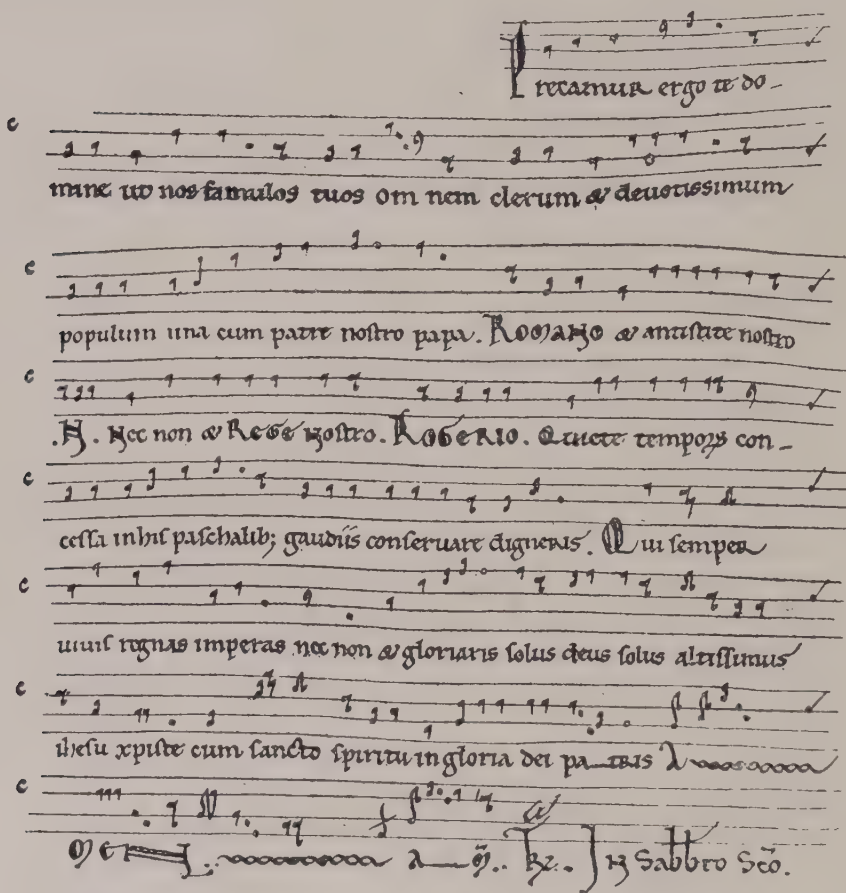 Precamur ergo te do-
mine ut nos famulos tuos om nem clerum & deuotissimum
populum una cum patre nostro papa. ROMANO & antistite nostro
.N. Nec non & REGE NOSTRO. ROGERIO. Quiete temporꝝ con-
cessa in his paschalib; gaudiis conseruare digneris. Qui semper
uiuis regnas imperas nec non & gloriaris solus deus solus altissimus
ihesu xpiste cum sancto spiritu in gloria dei pa-tris A
MEN. A-m̄. IN Sabbto Sc̄o.